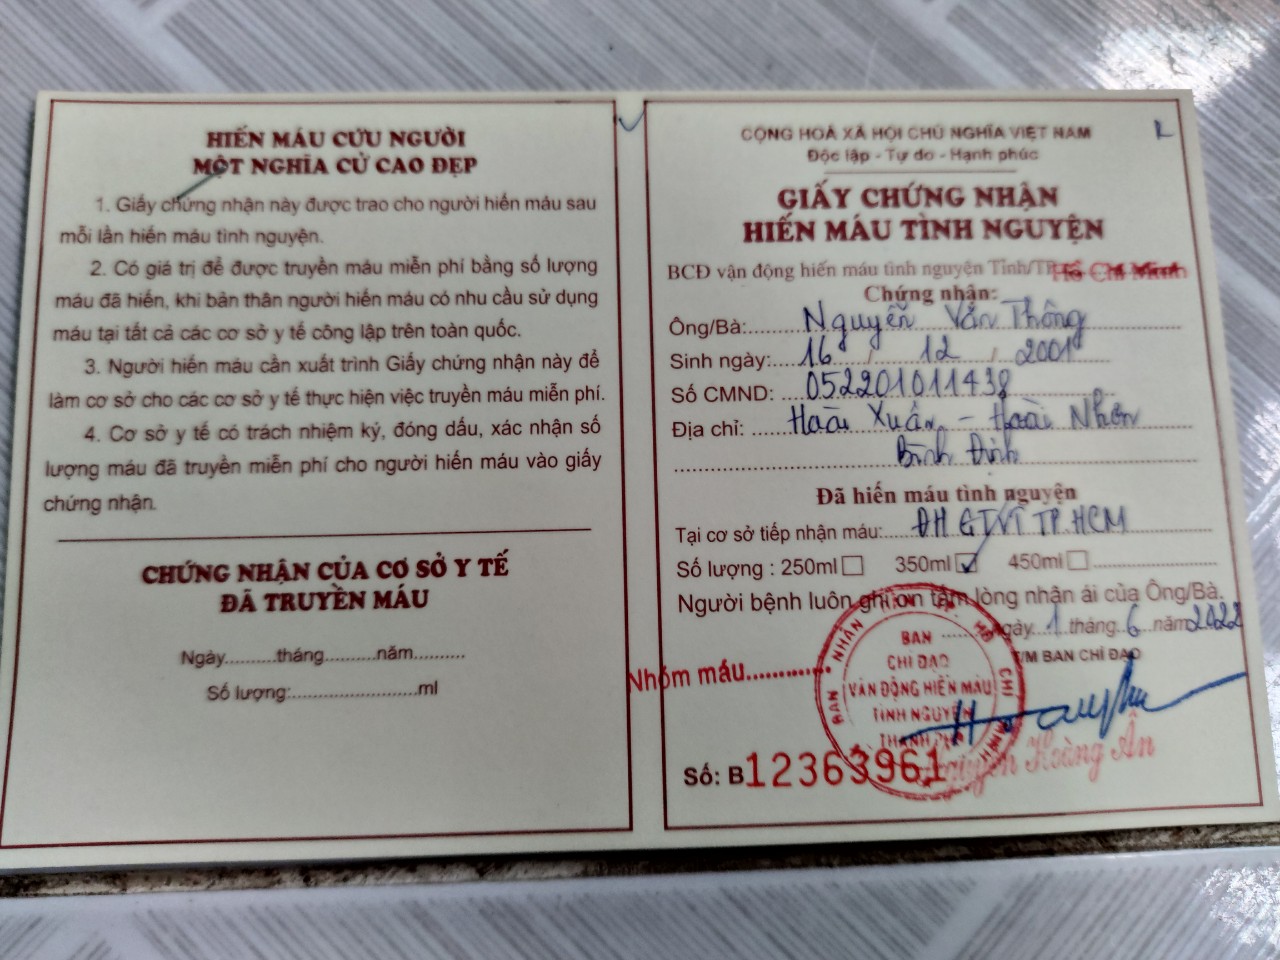 HIẾN MÁU CỨU NGƯỜI
MỘT NGHĨA CỬ CAO ĐẸP
1. Giấy chứng nhận này được trao cho người hiến máu sau
mỗi lần hiến máu tình nguyện.
2. Có giá trị để được truyền máu miễn phí bằng số lượng
máu đã hiến, khi bản thân người hiến máu có nhu cầu sử dụng
máu tại tất cả các cơ sở y tế công lập trên toàn quốc.
3. Người hiến máu cần xuất trình Giấy chứng nhận này để
làm cơ sở cho các cơ sở y tế thực hiện việc truyền máu miễn phí.
4. Cơ sở y tế có trách nhiệm ký, đóng dấu, xác nhận số
lượng máu đã truyền miễn phí cho người hiến máu vào giấy
chứng nhận.
CHỨNG NHẬN CỦA CƠ SỞ Y TẾ
ĐÃ TRUYỀN MÁU
Ngày.........tháng.........năm.........
Số lượng:......................ml
CỘNG HOÀ XÃ HỘI CHỦ NGHĨA VIỆT NAM
Độc lập - Tự do - Hạnh phúc
GIẤY CHỨNG NHẬN
HIẾN MÁU TÌNH NGUYỆN
BCĐ vận động hiến máu tình nguyện Tỉnh/TP Hồ Chí Minh
Chứng nhận:
Ông/Bà: Nguyễn Văn Thông
Sinh ngày: 16 / 12 / 2001
Số CMND: 052201011438
Địa chỉ: Hoài Xuân - Hoài Nhơn
Bình Định
Đã hiến máu tình nguyện
Tại cơ sở tiếp nhận máu: ĐH GTVT TP.HCM
Số lượng : 250ml 350ml 450ml
Người bệnh luôn ghi ơn tấm lòng nhân ái của Ông/Bà.
Ngày 1 tháng 6 năm 2022
T/M BAN CHỈ ĐẠO
Nhóm máu............
BAN
CHỈ ĐẠO
VẬN ĐỘNG HIẾN MÁU
TÌNH NGUYỆN
THÀNH PHỐ
Nguyễn Hoàng Ân
Số: B12363961